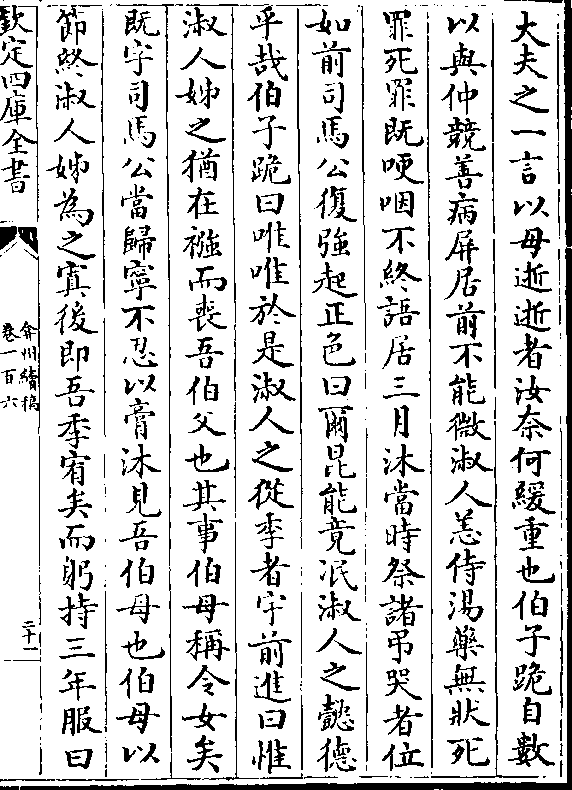 大夫之一言以母逝逝者汝奈何緩重也伯子跪自數
以與仲競善病屏居前不能微淑人恙侍湯藥無狀死
罪死罪既哽咽不終語居三月沐當時祭諸弔哭者位
如前司馬公復強起正色曰爾昆能竟泯淑人之懿德
乎哉伯子跪曰唯唯於是淑人之從季者字前進曰惟
淑人姊之猶在襁而喪吾伯父也其事伯母稱令女矣
既字司馬公當歸寧不忍以膏沐見吾伯母也伯母以
節終淑人姊為之寘後即吾季宥矣而躬持三年服曰
欽定四庫全書
弇州續稿
卷一百六
二十一